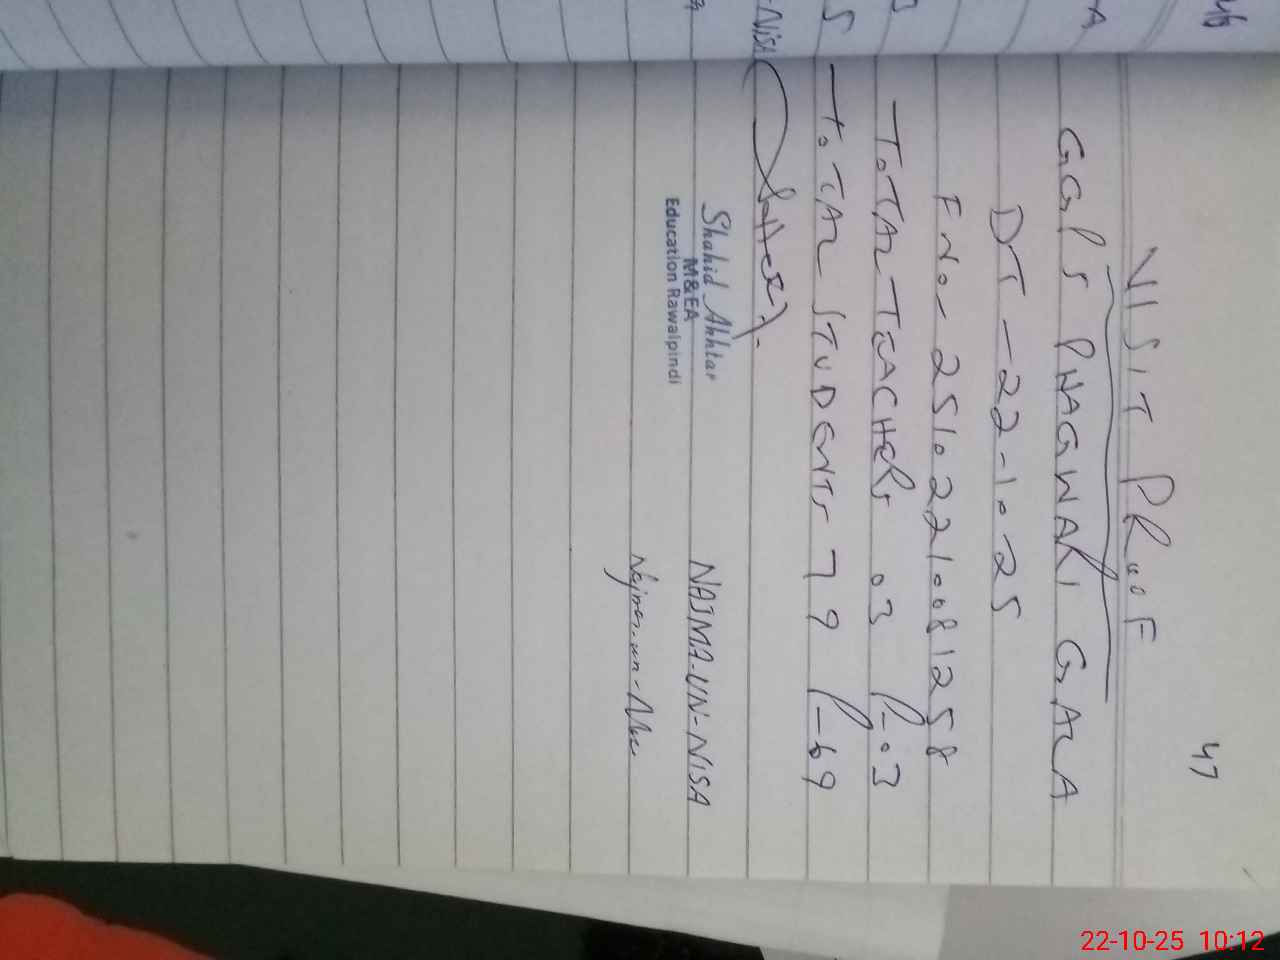 47
VISIT PROOF
GGPS PHAGWARI GALA
DT - 22-10-25
FNo- 25102210081258
TOTAL TEACHERS 03 P-03
TOTAL STUDENTS 79 P-69
Shahid Akhtar
M&EA
Education Rawalpindi
NAJMA-UN-NISA
Najma-un-Nisa
46
A
3
5
-NISA
22-10-25 10:12